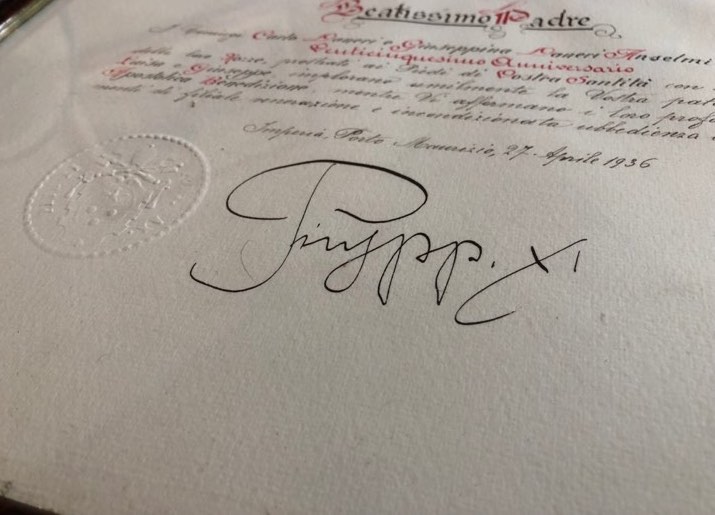 Beatissimo Padre
I Coniugi Carlo Laneri e Giuseppina Laneri Anselmi
Venticinquesimo Anniversario
delle loro Nozze, prostrati ai Piedi di Vostra Santità con
Luisa e Giuseppe, implorano umilmente la Vostra
Apostolica Benedizione, mentre Vi affermano i loro
di filiale venerazione e incondizionata ubbidienza
Imperia, Porto Maurizio, 27 Aprile 1936
Pius pp. XI